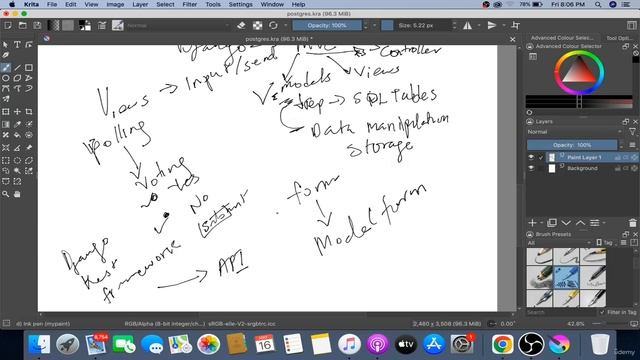 Krita File Edit View Image Layer Select Filter Tools Settings Window Help
78% Fri 8:06 PM
postgres.kra (96.3 MiB)
postgres.kra (96.3 MiB) *
Normal
Opacity: 100%
Size: 5.22 px
Django
MVC
Controller
Views → Input/send
models
Views
rep → SQL Tables
Polling
Data manipulation
Storage
Voting
Yes
No
form
Model form
Django
Rest
framework
API
Advanced Colour Selec...
Layers
Normal
Opacity: 100%
Paint Layer 1
Background
Brush Presets
Tag
Search
Filter in Tag
d) Ink pen (mypaint)
RGB/Alpha (8-bit integer/ch... sRGB-elle-V2-srgbtrc.icc
2,480 x 3,508 (96.3 MiB)
0.00°
42.8%
8,754
SAT
16
Udemy